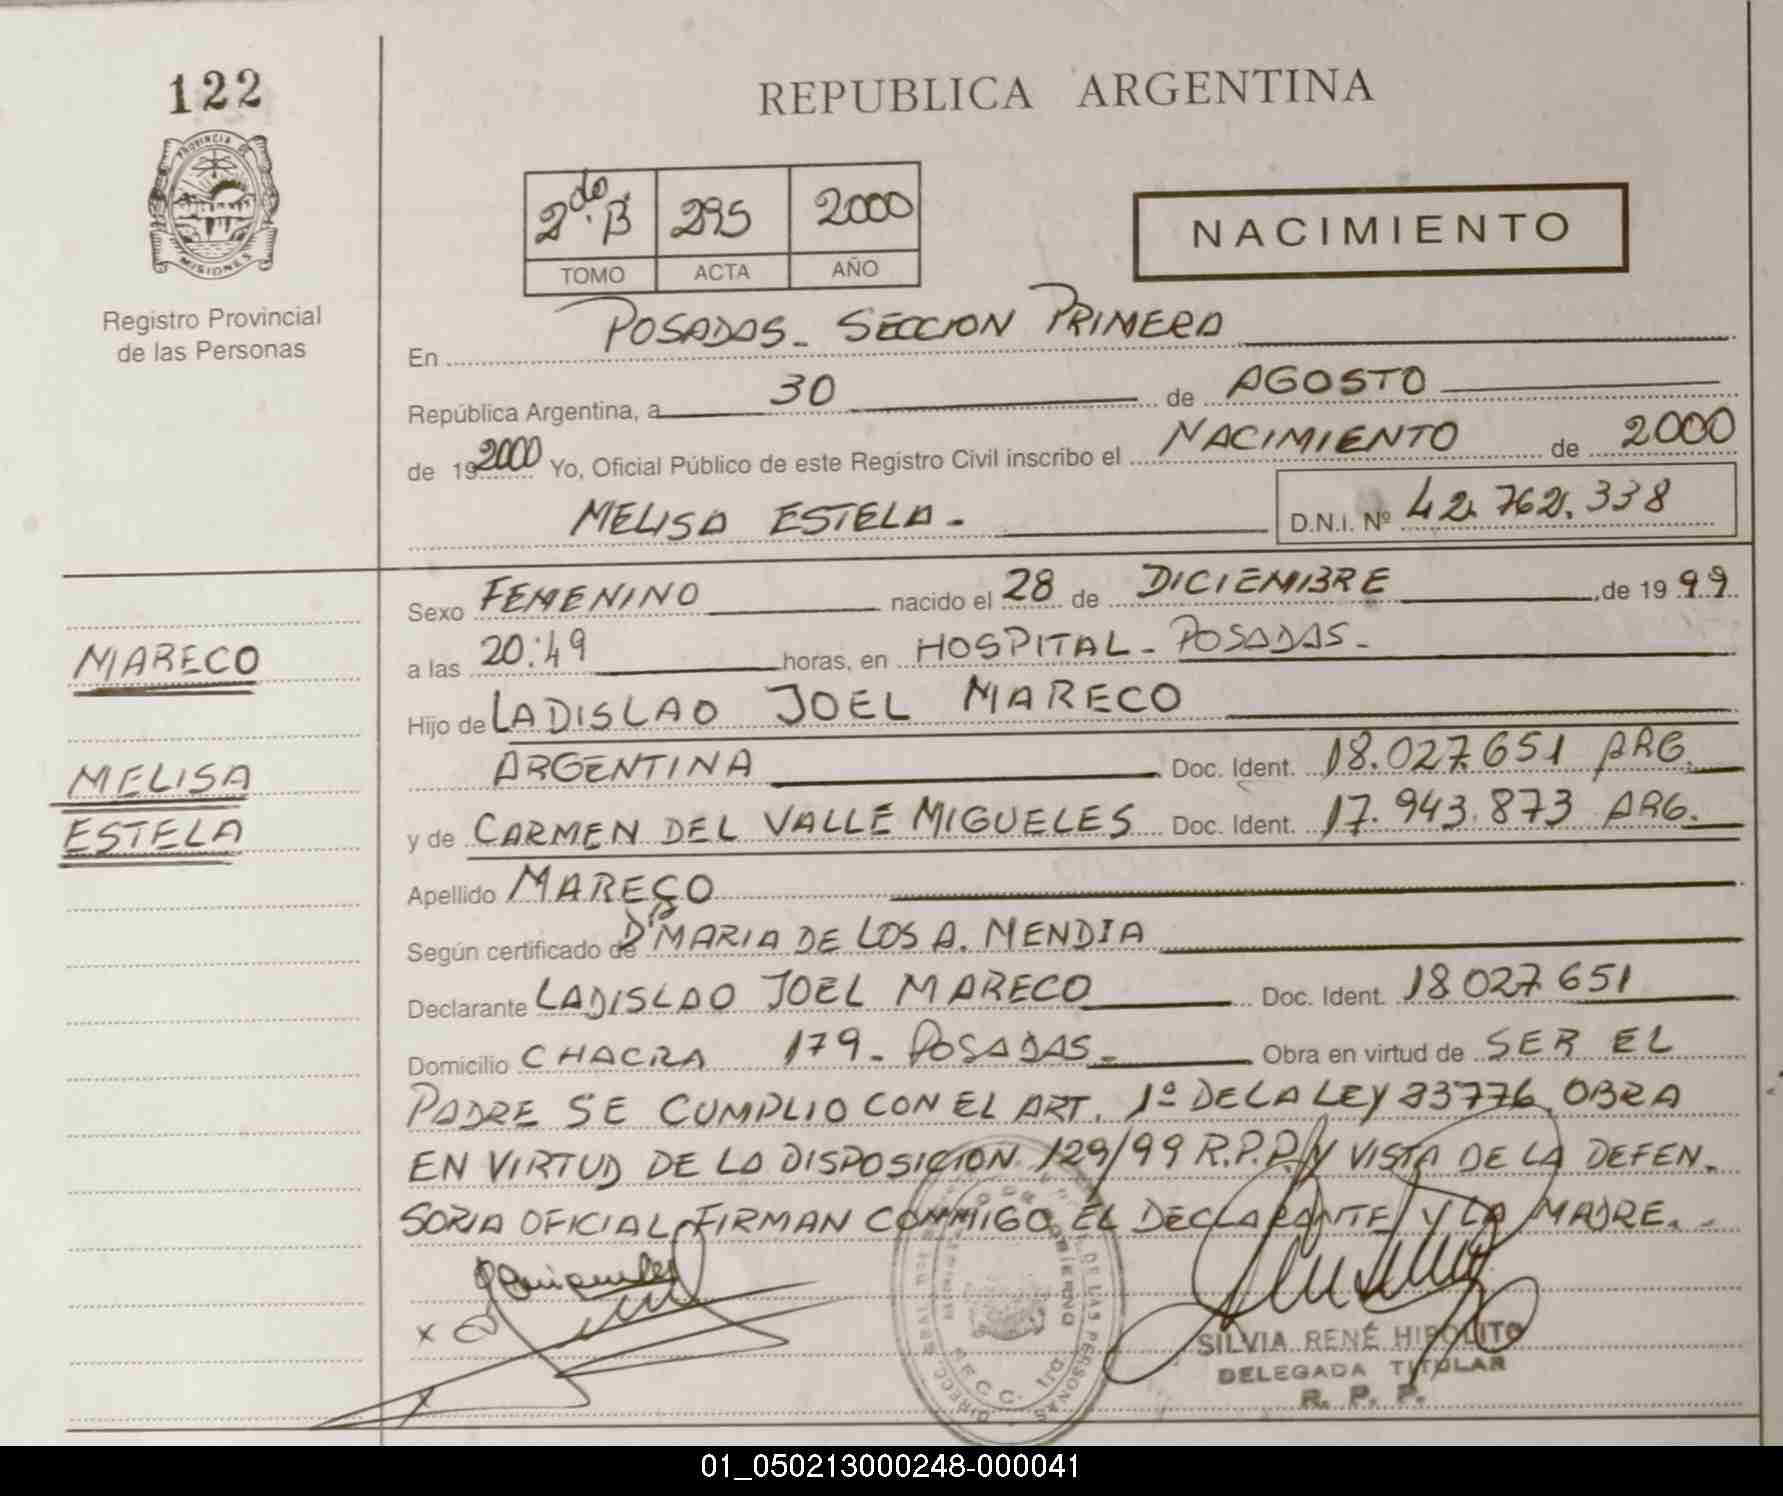 122
PROVINCIA DE
MISIONES
Registro Provincial
de las Personas
REPUBLICA ARGENTINA
2do. B 295 2000
TOMO ACTA AÑO
NACIMIENTO
En POSADAS - SECCION PRIMERA
República Argentina, a 30 de AGOSTO
de 19 2000 Yo, Oficial Público de este Registro Civil inscribo el NACIMIENTO de 2000
MELISA ESTELA - D.N.I. Nº 42.762.338
Sexo FEMENINO nacido el 28 de DICIEMBRE, de 19 99
MARECO
a las 20:49 horas, en HOSPITAL - POSADAS -
Hijo de LADISLAO JOEL MARECO
MELISA
ARGENTINA Doc. Ident. 18.027.651 ARG.
ESTELA
y de CARMEN DEL VALLE MIGUELES Doc. Ident. 17.943.873 ARG.
Apellido MARECO
Según certificado de Dra MARIA DE LOS A. MENDIA
Declarante LADISLAO JOEL MARECO Doc. Ident. 18.027.651
Domicilio CHACRA 179 - POSADAS - Obra en virtud de SER EL
PADRE SE CUMPLIO CON EL ART. 1º DE LA LEY 23776. OBRA
EN VIRTUD DE LA DISPOSICION 129/99 R.P.P. Y VISTA DE LA DEFEN-
SORIA OFICIAL FIRMAN CONMIGO EL DECLARANTE Y LA MADRE. -
SILVIA RENÉ HIPOLITO
DELEGADA TITULAR
R. P. P.
01_050213000248-000041